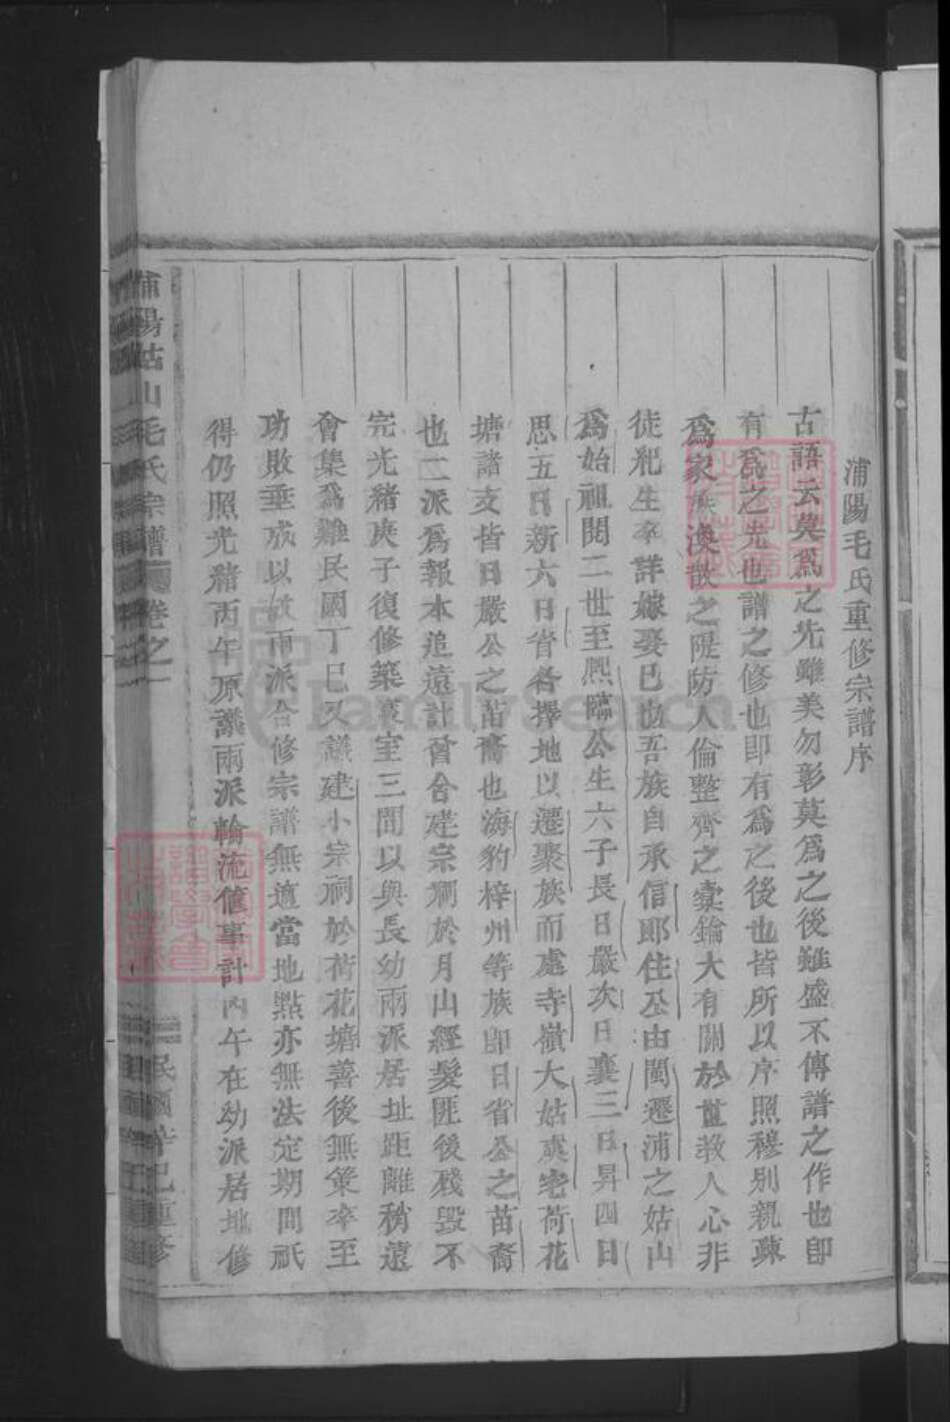 浦陽毛氏重修宗譜序
古語云莫為之先雖美勿彰莫為之後雖盛不傳譜之作也即
有為之先也譜之修也即有為之後也皆所以序照穆別親疎
為家族渙散之隄防人倫整齊之橐鑰大有關於世教人心非
徒紀生卒詳嫁娶已也吾族自承信郎住公由閩遷浦之姑山
為始祖閱二世至熙臨公生六子長曰嚴次曰襄三曰昇四曰
思五曰新六曰省各擇地以遷聚族而處寺嶺大姑宅荷花
塘諸支皆曰嚴公之苗裔也海豹梓州等族即曰省公之苗裔
也二派為報本追遠計曾合建宗祠於月山經髮匪後殘毀不
完光緒庚子復修築寢室三間以與長幼兩派居址距離稍遠
會集為難民國丁巳又議建小宗祠於荷花塘善後無策卒至
功敗垂成以故兩派合修宗譜無適當地點亦無法定期間祇
得仍照光緒丙午原議兩派輪流值事計丙午在幼派居地修
浦陽姑山毛氏宗譜 卷之一
民國己重修
FamilySearch